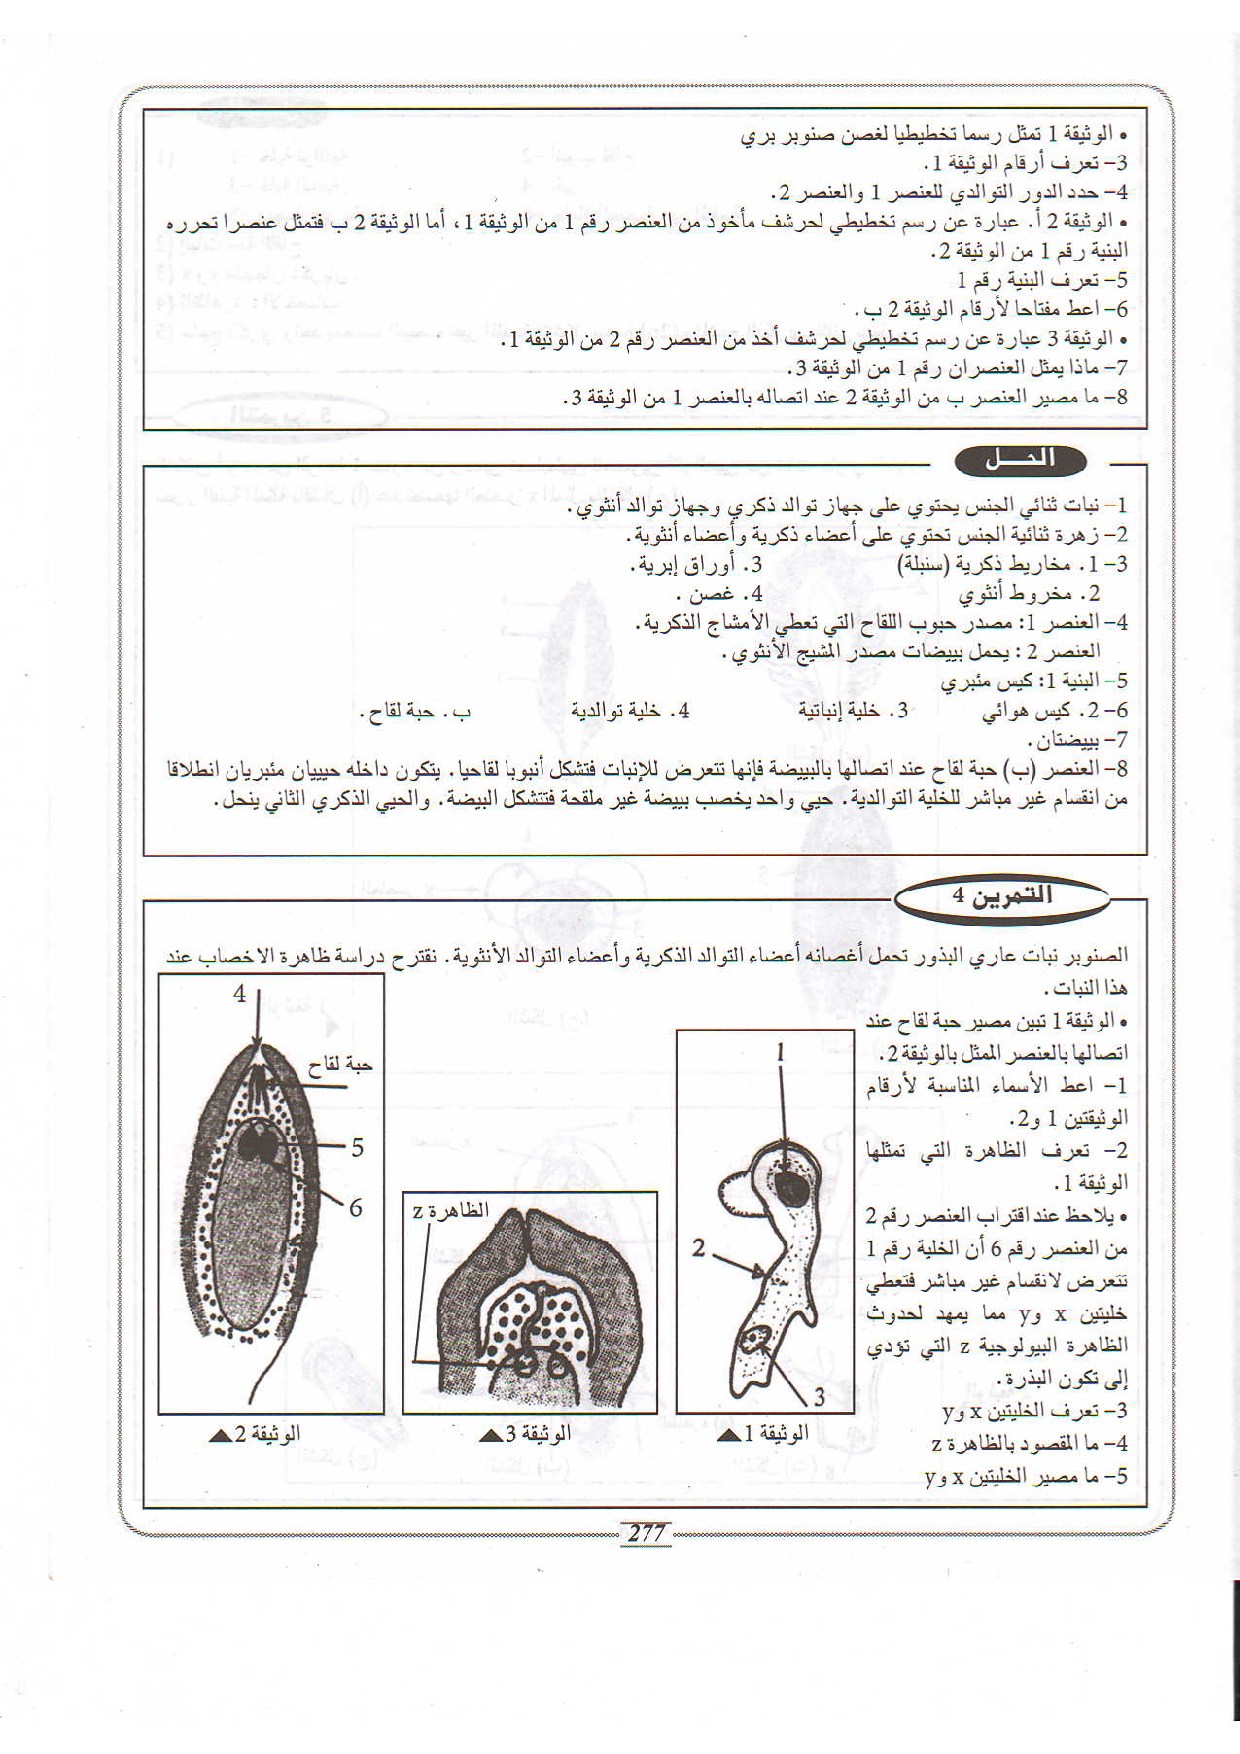 • الوثيقة 1 تمثل رسما تخطيطيا لغصن صنوبر بري
3– تعرف أرقام الوثيقة 1.
4– حدد الدور التوالدي للعنصر 1 والعنصر 2.
• الوثيقة 2 أ. عبارة عن رسم تخطيطي لحرشف مأخوذ من العنصر رقم 1 من الوثيقة 1، أما الوثيقة 2 ب فتمثل عنصرا تحرره
البنية رقم 1 من الوثيقة 2.
5– تعرف البنية رقم 1
6– اعط مفتاحا لأرقام الوثيقة 2 ب.
• الوثيقة 3 عبارة عن رسم تخطيطي لحرشف أخذ من العنصر رقم 2 من الوثيقة 1.
7– ماذا يمثل العنصران رقم 1 من الوثيقة 3.
8– ما مصير العنصر ب من الوثيقة 2 عند اتصاله بالعنصر 1 من الوثيقة 3.
الحـل
1– نبات ثنائي الجنس يحتوي على جهاز توالد ذكري وجهاز توالد أنثوي.
2– زهرة ثنائية الجنس تحتوي على أعضاء ذكرية وأعضاء أنثوية.
3– 1. مخاريط ذكرية (سنبلة) 3. أوراق إبرية.
2. مخروط أنثوي 4. غصن .
4– العنصر 1: مصدر حبوب اللقاح التي تعطي الأمشاج الذكرية.
العنصر 2 : يحمل بييضات مصدر المشيج الأنثوي .
5– البنية 1: كيس مئبري
6– 2. كيس هوائي 3. خلية إنباتية 4. خلية توالدية ب. حبة لقاح.
7– بييضتان.
8– العنصر (ب) حبة لقاح عند اتصالها بالبييضة فإنها تتعرض للإنبات فتشكل أنبوبا لقاحيا. يتكون داخله حييان مئبريان انطلاقا
من انقسام غير مباشر للخلية التوالدية. حيي واحد يخصب بييضة غير ملقحة فتتشكل البيضة. والحيي الذكري الثاني ينحل.
التمرين 4
الصنوبر نبات عاري البذور تحمل أغصانه أعضاء التوالد الذكرية وأعضاء التوالد الأنثوية. نقترح دراسة ظاهرة الاخصاب عند
هذا النبات.
• الوثيقة 1 تبين مصير حبة لقاح عند
اتصالها بالعنصر الممثل بالوثيقة 2.
1– اعط الأسماء المناسبة لأرقام
الوثيقتين 1 و2.
2– تعرف الظاهرة التي تمثلها
الوثيقة 1.
• يلاحظ عند اقتراب العنصر رقم 2
من العنصر رقم 6 أن الخلية رقم 1
تتعرض لانقسام غير مباشر فتعطي
خليتين x وy مما يمهد لحدوث
الظاهرة البيولوجية z التي تؤدي
إلى تكون البذرة.
3– تعرف الخليتين x وy
4– ما المقصود بالظاهرة z
5– ما مصير الخليتين x وy
1
2
3
الوثيقة 1
الظاهرة z
الوثيقة 3
4
حبة لقاح
5
6
الوثيقة 2
277